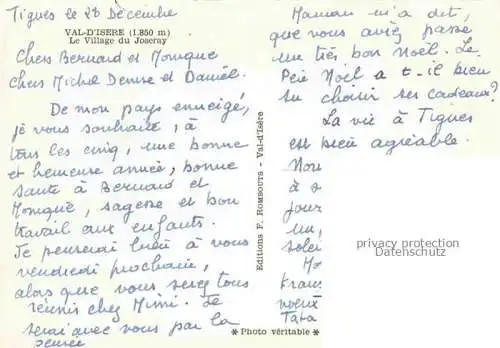 Tignes le 28 Décembre
VAL-D'ISERE (1.850 m)
Le Village du Joseray
Chers Bernard et Monique
Chers Michel Denise et Daniel.
De mon pays enneigé,
je vous souhaite, à
tous les cinq, une bonne
et heureuse année, bonne
santé à Bernard et
Monique, sagesse et bon
travail aux enfants.
Je penserai bien à vous
vendredi prochain,
alors que vous serez tous
réunis chez Mimi. Je
serai avec vous par la
pensée
Editions F. ROMBOUTS - Val-d'Isère
Maman m'a dit,
que vous aviez passé
un très bon Noël. Le
Père Noël a t-il bien
su choisir ses cadeaux?
La vie à Tignes
est bien agréable.
Nou
à s
jour
un,
solei
Mo
frans
voeux
Tata
privacy protection
Datenschutz
* Photo véritable *